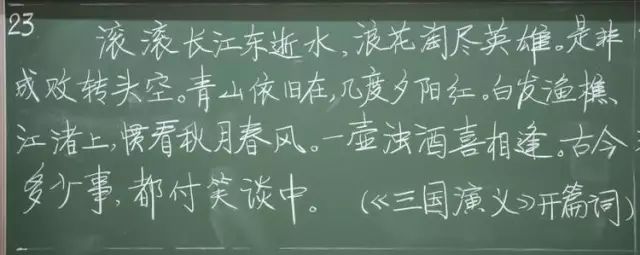 23
滚滚长江东逝水，浪花淘尽英雄。是非
成败转头空。青山依旧在，几度夕阳红。白发渔樵、
江渚上，惯看秋月春风。一壶浊酒喜相逢。古今
多少事，都付笑谈中。（《三国演义》开篇词）